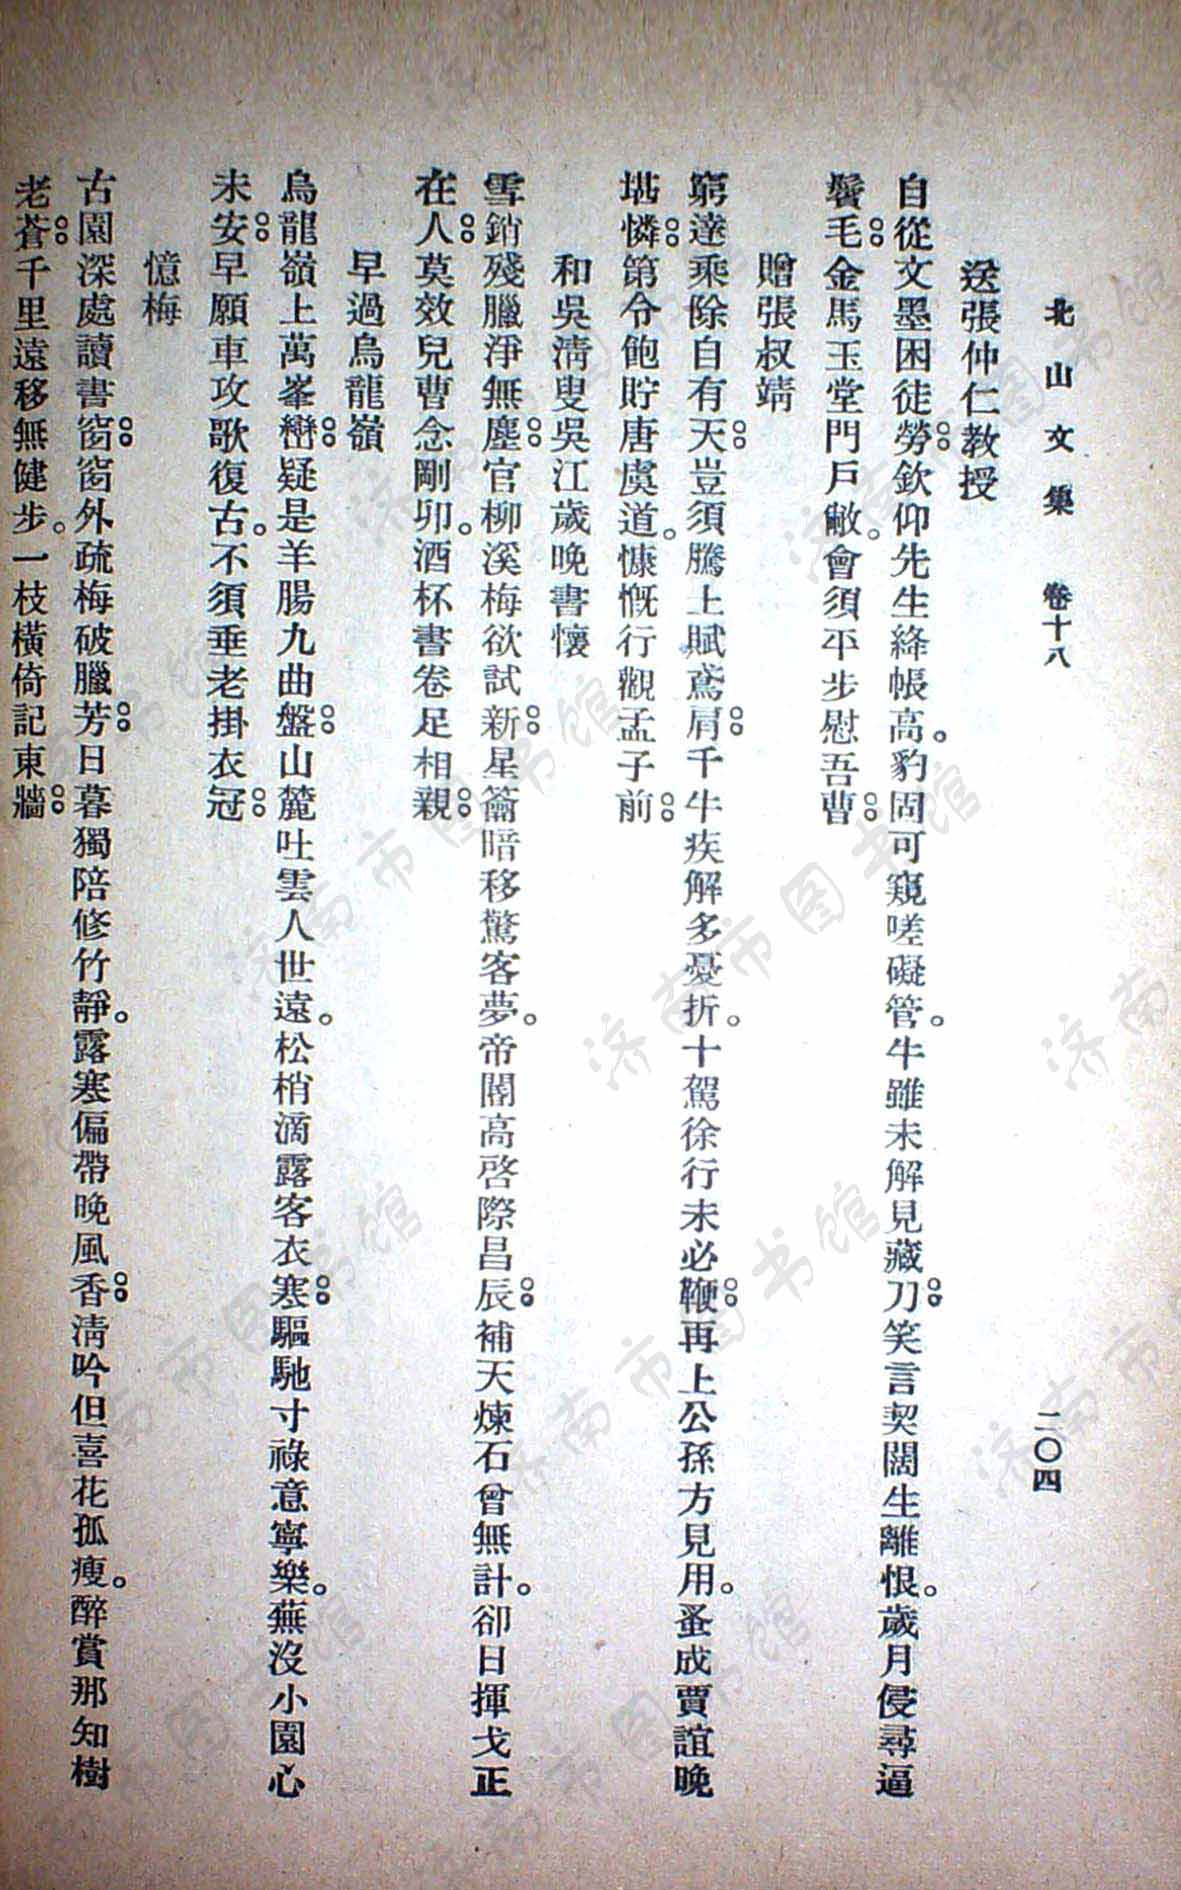 北山文集 卷十八 二〇四
送張仲仁教授
自從文墨困徒勞。欽仰先生絳帳高。豹固可窺嗟礙管。牛雖未解見藏刀。笑言契闊生離恨。歲月侵尋逼
鬢毛。金馬玉堂門戶敞。會須平步慰吾曹。
贈張叔靖
窮達乘除自有天。豈須騰上賦鳶肩。千牛疾解多憂折。十駕徐行未必鞭。再上公孫方見用。蚤成賈誼晚
堪憐。第令飽貯唐虞道。慷慨行觀孟子前。
和吳清叟吳江歲晚書懷
雪銷殘臘淨無塵。官柳溪梅欲試新。星籥暗移驚客夢。帝閽高啓際昌辰。補天煉石曾無計。卻日揮戈正
在人。莫效兒曹念剛卯。酒杯書卷足相親。
早過烏龍嶺
烏龍嶺上萬峯巒。疑是羊腸九曲盤。山麓吐雲人世遠。松梢滴露客衣寒。驅馳寸祿意寧樂。蕪沒小園心
未安。早願車攻歌復古。不須垂老掛衣冠。
憶梅
古園深處讀書窗。窗外疏梅破臘芳。日暮獨陪修竹靜。露寒偏帶晚風香。清吟但喜花孤瘦。醉賞那知樹
老蒼。千里遠移無健步。一枝橫倚記東牆。
济南市图书馆